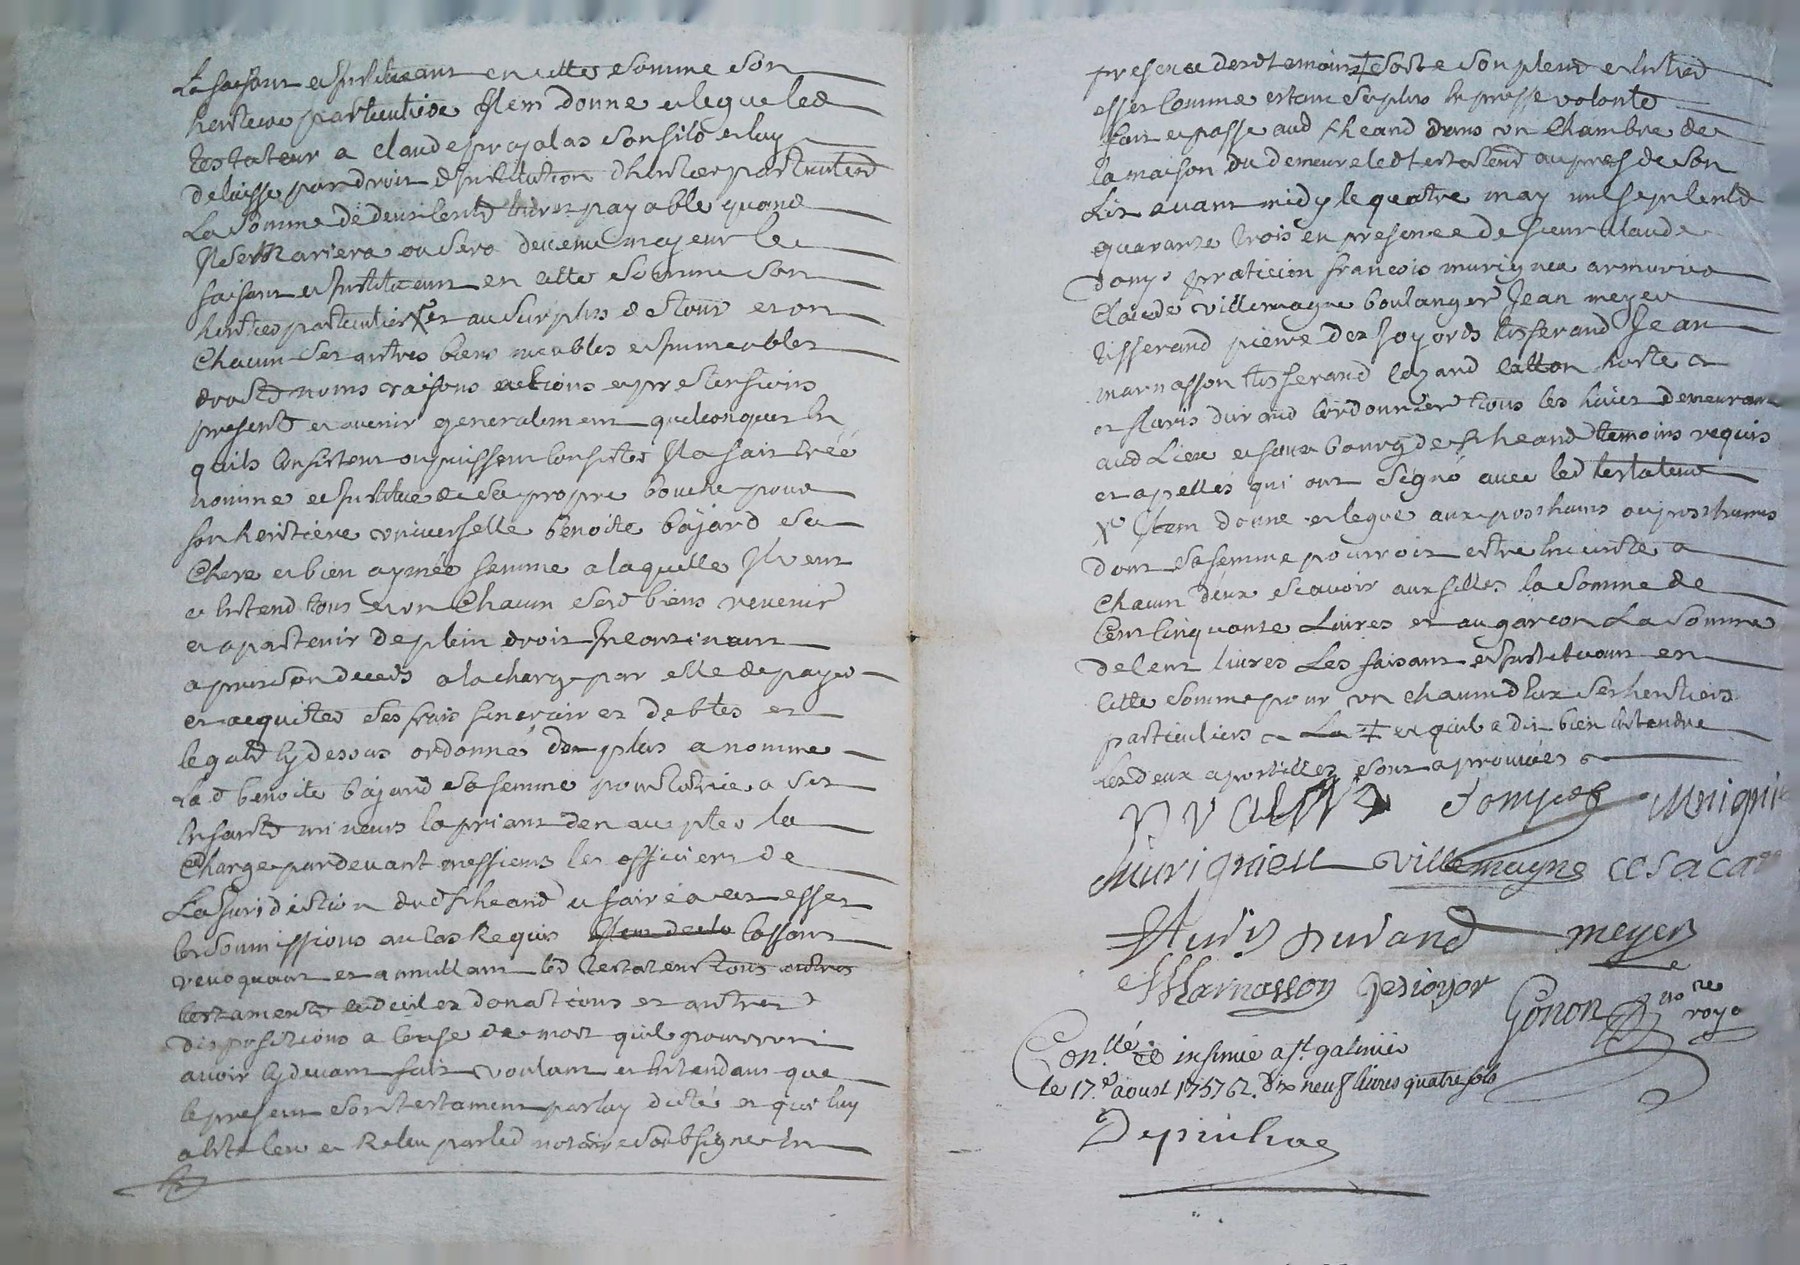 La faisant et Instituant en cette somme son
heritiere particuliere Item donne et legue led
testateur a claude projalas son fils et luy
delaisse par droit d'Institution d'heritier particulier
La somme de deux cents livres payable quand
Il se Mariera ou sera devenu mayeur le
faisant et Instituant en cette somme son
heritier particulier X et au surplus de tous et un
Chacun ses autres biens meubles et Immeubles
droits noms raisons actions et pretensions
presents et avenir generalement quelconques En
quils Consistent ou puissent Consister Il a fait créé
nomme et Institue de sa propre bouche pour
son heritiere universelle benoite bajard sa
Chere et bien aymée femme a laquelle Il veut
et Entend tous et un Chacun sesd biens revenir
et apartenir de plein droit Incontinant
apres son deceds a la charge par elle de payer
et acquitter ses frais funeraires et debtes et
legats cy dessus ordonné de plus a nomme
Lad benoite bajard sa femme pour tutrice a ses
Enfants mineurs la priant d'en accepter la
Charge pardevant messieurs les officiers de
La Juridiction dud st heand et faire a cet effet
les soumissions au cas Requis cassant
revoquant et annullant led testateur tous autres
testaments codicilles donations et autres
dispositions a Cause de mort quil pourroit
avoir cy devant fait voulant et Entendant que
le present son testament par luy dicté et qui luy
a été leu et Releu par led notaire soubsigné En
presence desd temoins ‡ sorte son plein et Entier
effet Comme estant sa plus Expresse volonte
fait et passe aud st heand dans un Chambre de
la maison ou demeure led testateur aupres de son
Lit avant midy le quatre may mil sept cents
quarante trois en presence de sieur claude
donys praticien francois murigneux armurier
Claude villemagne boulanger Jean meyer
tisserand pierre desjoyords tisserand Jean
marnasson tisserand lazard catton hoste a
et fluris durand cordonnier tous les huict demeurants
aud Lieu et faux bourg de st heand temoins requis
et apellés qui ont signé avec led testateur
X Item donne et legue aux posthumes ou posthumes
dont sa femme pourroit estre Enceinte a
Chacun d'eux scavoir aux filles la somme de
Cent Cinquante Livres et au garçon La somme
de Cent livres Les faisant et Instituant en
Cette somme pour un chacun d'Eux ses heritiers
particuliers ‡ et quil a dit bien Entendre
Les deux apostilles sont aprouvées
donys
murignieu villemagne
fluris Durand meyer
Marnasson Desjoyor
Gonon no.re royal
Con.llé et insinué a st galmier
le 17.e aoust 1757 62. dix neuf livres quatre sols
Depinhac